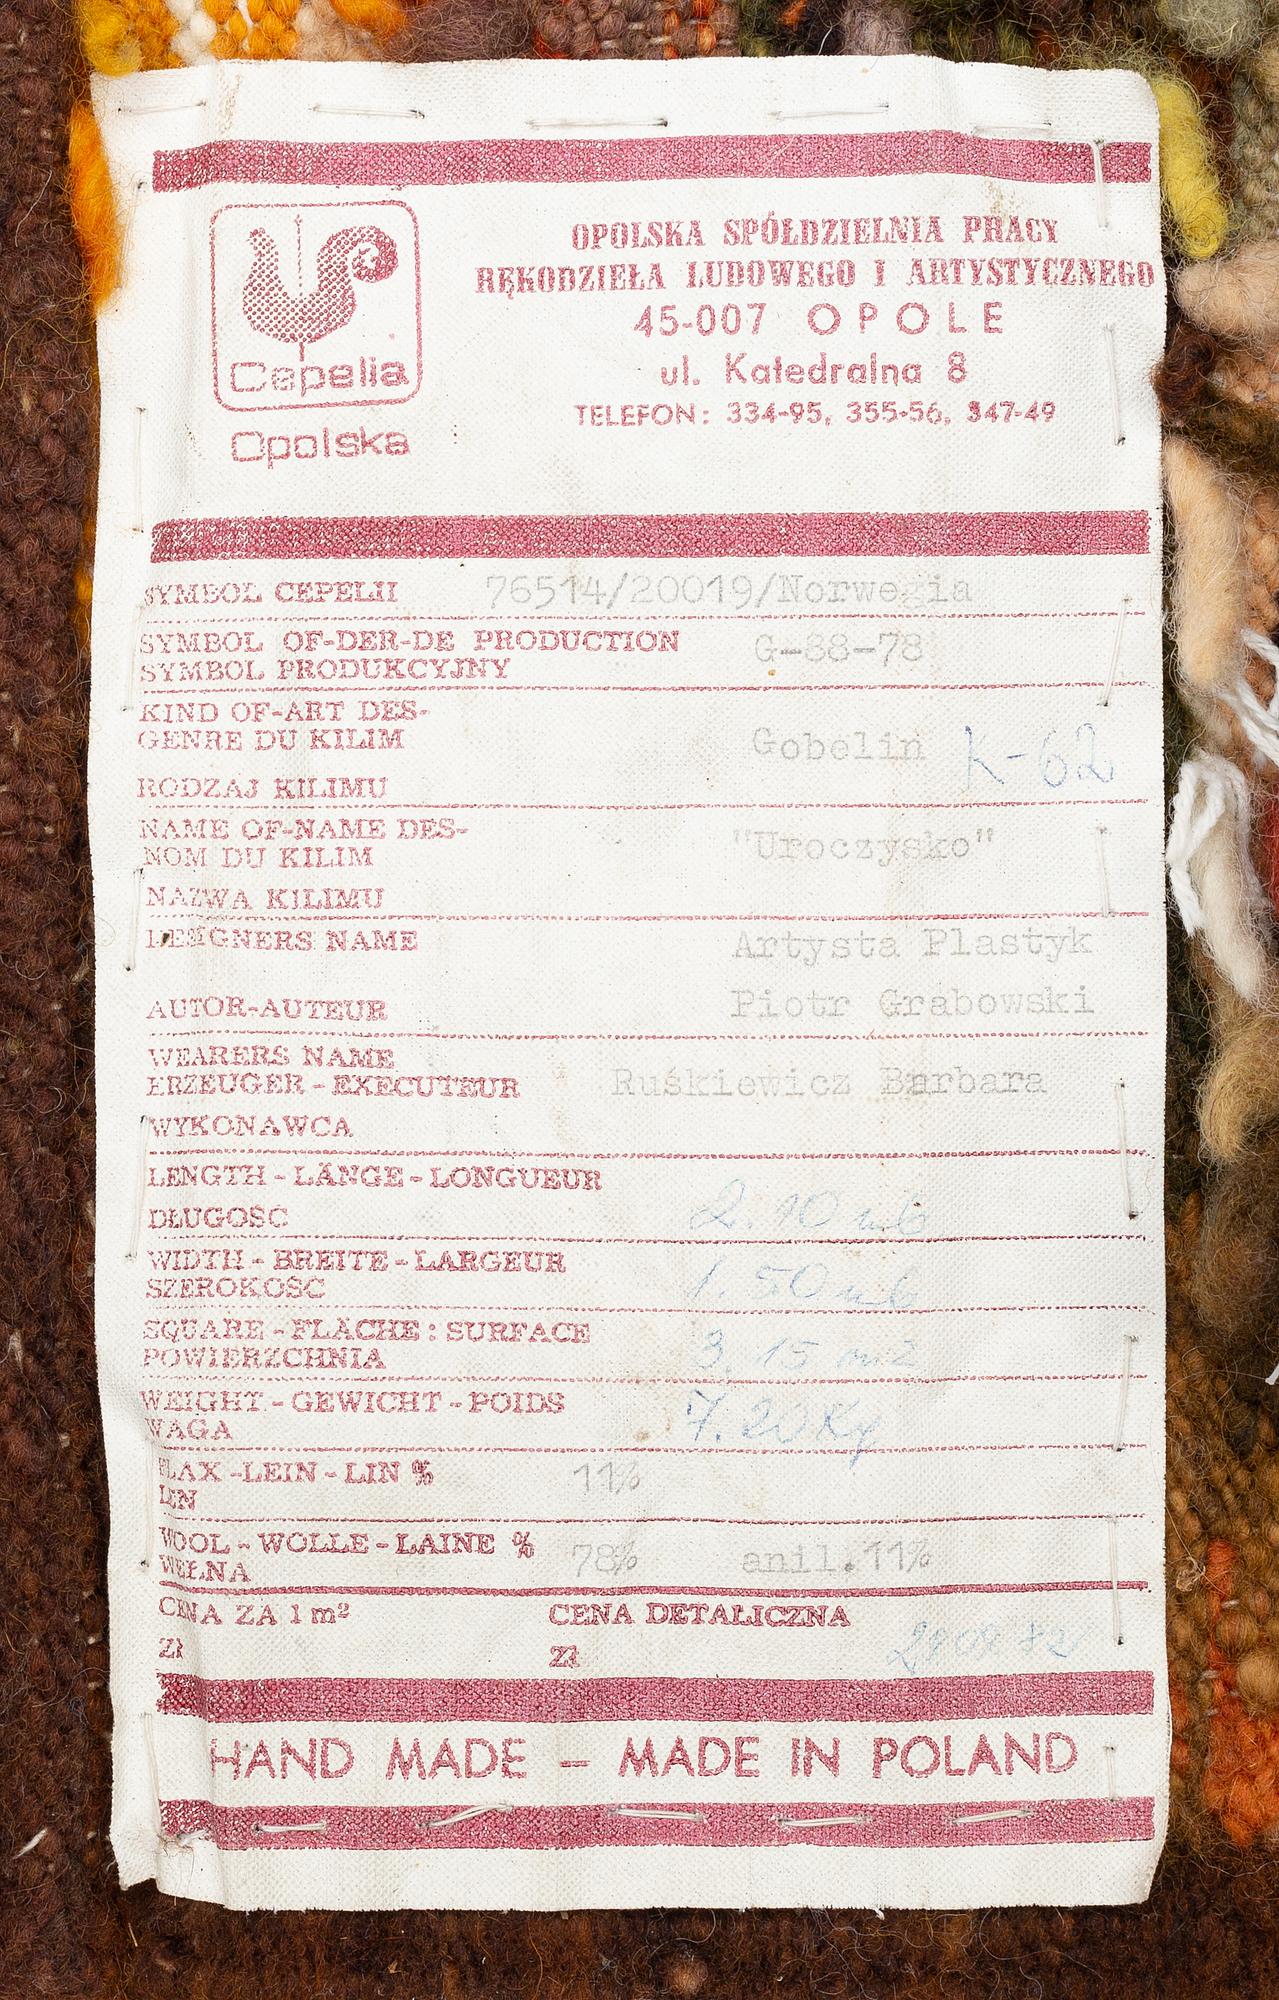 OPOLSKA SPÓŁDZIELNIA PRACY
RĘKODZIEŁA LUDOWEGO I ARTYSTYCZNEGO
45-007 OPOLE
ul. Katedralna 8
TELEFON: 334-95, 355-56, 347-49
Cepelia
Opolska
SYMBOL CEPELII 76514/20019/Norwegia
SYMBOL OF-DER-DE PRODUCTION G-88-78
SYMBOL PRODUKCYJNY
KIND OF-ART DES-
GENRE DU KILIM Gobelin K-62
RODZAJ KILIMU
NAME OF-NAME DES-
NOM DU KILIM "Uroczysko"
NAZWA KILIMU
DESIGNERS NAME Artysta Plastyk
AUTOR-AUTEUR Piotr Grabowski
WEARERS NAME
ERZEUGER - EXECUTEUR Ruśkiewicz Barbara
WYKONAWCA
LENGTH - LÄNGE - LONGUEUR
DŁUGOŚC 2.10 mb
WIDTH - BREITE - LARGEUR
SZEROKOŚC 1.50 mb
SQUARE - FLACHE : SURFACE
POWIERZCHNIA 3.15 m2
WEIGHT - GEWICHT - POIDS
WAGA 7.20 Kg
FLAX - LEIN - LIN % 11%
LEN
WOOL - WOLLE - LAINE % 78% anil. 11%
WEŁNA
CENA ZA 1 m² CENA DETALICZNA
Zł Zł
HAND MADE – MADE IN POLAND